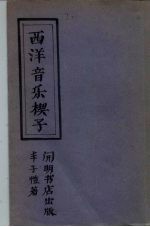 西洋音乐楔子
开明书店出版
丰子恺著